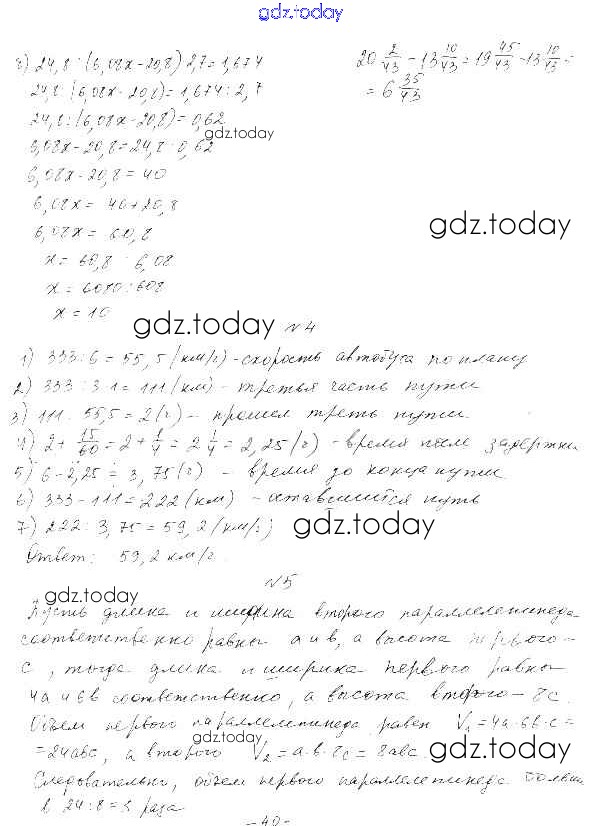 gdz.today
б) 24,8 : (6,08x-20,8) · 2,7 = 1,674
20 2/43 - 13 10/43 = 19 45/43 - 13 10/43 =
= 6 35/43
24,8 : (6,08x - 20,8) = 1,674 : 2,7
24,8 : (6,08x - 20,8) = 0,62
gdz.today
6,08x - 20,8 = 24,8 : 0,62
6,08x - 20,8 = 40
6,08x = 40 + 20,8
gdz.today
6,08x = 60,8
x = 60,8 : 6,08
x = 6080 : 608
x = 10
gdz.today
№4
1) 333 : 6 = 55,5 (км/г) - скорость автобуса по плану
2) 333 : 3 = 111 (км) - третья часть пути
3) 111 : 55,5 = 2 (г) - прошел треть пути.
4) 2 + 15/60 = 2 + 1/4 = 2 1/4 = 2,25 (г) - время после задержки
5) 6 - 2,25 = 3,75 (г) - время до конца пути.
6) 333 - 111 = 222 (км) - оставшийся путь
7) 222 : 3,75 = 59,2 (км/г)
gdz.today
Ответ: 59,2 км/г.
№5
gdz.today
Пусть длина и ширина второго параллелепипеда
соответственно равны a и b, а высота первого -
c, тогда длина и ширина первого равны
4a и 6b соответственно, а высота второго - 8c.
Объем первого параллелепипеда равен V₁ = 4a · 6b · c =
gdz.today
= 24abc, а второго V₂ = a · b · 8c = 8abc.
gdz.today
Следовательно, объем первого параллелепипеда больше
в 24 : 8 = 3 раза
- 40 -